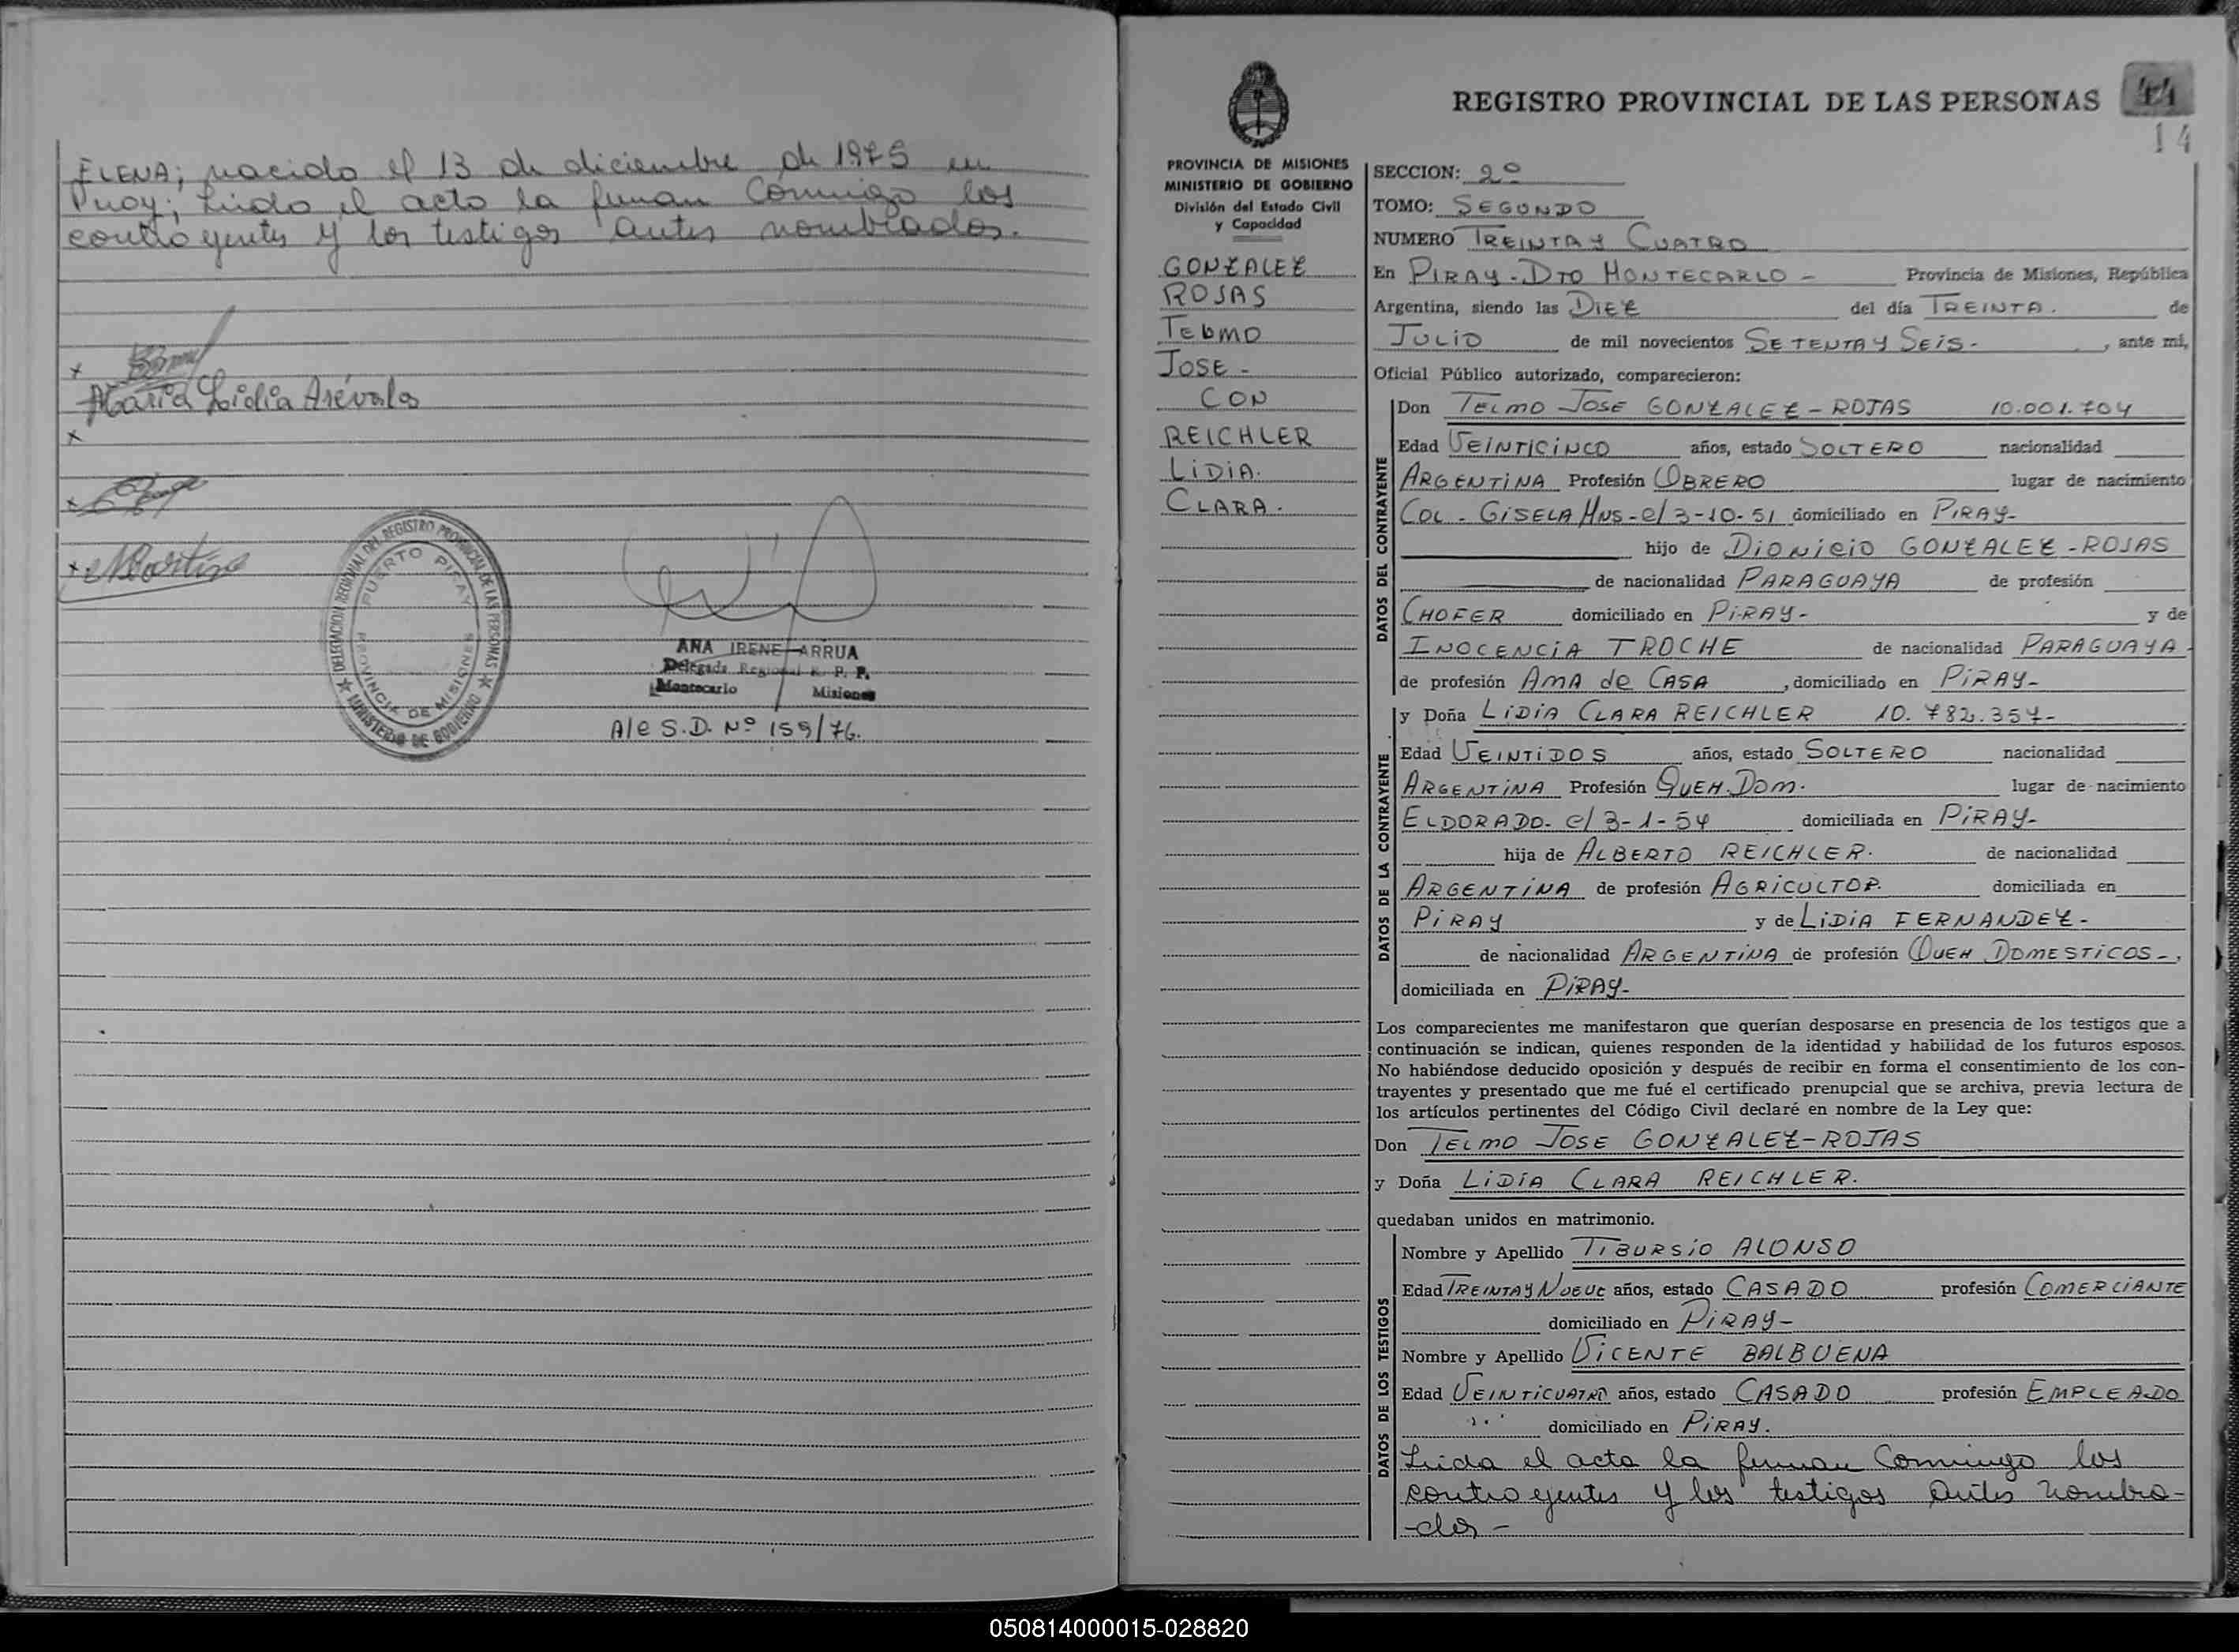 ELENA; nacida el 13 de diciembre de 1975 en
Piray; Leida el acta la firman Conmigo los
contrayentes y los testigos antes nombrados.
x
Maria Lidia Arévalo
x
x
x Martinez
★ DELEGACION REGIONAL DEL REGISTRO PROVINCIAL DE LAS PERSONAS ★
MINISTERIO DE GOBIERNO
PUERTO PIRAY
PROVINCIA DE MISIONES
ANA IRENE ARRUA
Delegada Regional R. P. P.
Montecarlo Misiones
A/e S.D. Nº 159/76.
REGISTRO PROVINCIAL DE LAS PERSONAS
44
14
PROVINCIA DE MISIONES
MINISTERIO DE GOBIERNO
División del Estado Civil
y Capacidad
GONZALEZ
ROJAS
TELMO
JOSE -
CON
REICHLER
LIDIA.
CLARA.
SECCION: 2º
TOMO: SEGUNDO
NUMERO TREINTA Y CUATRO
En PIRAY - DTO MONTECARLO - Provincia de Misiones, República
Argentina, siendo las DIEZ del día TREINTA. de
JULIO de mil novecientos SETENTA Y SEIS - , ante mí,
Oficial Público autorizado, comparecieron:
DATOS DEL CONTRAYENTE
Don TELMO JOSE GONZALEZ - ROJAS 10.001.704
Edad VEINTICINCO años, estado SOLTERO nacionalidad
ARGENTINA Profesión OBRERO lugar de nacimiento
COL - GISELA MNS - el 3-10-51 domiciliado en PIRAY-
hijo de DIONICIO GONZALEZ - ROJAS
de nacionalidad PARAGUAYA de profesión
CHOFER domiciliado en PIRAY- y de
INOCENCIA TROCHE de nacionalidad PARAGUAYA -
de profesión AMA de CASA , domiciliado en PIRAY-
DATOS DE LA CONTRAYENTE
y Doña LIDIA CLARA REICHLER 10.782.357-
Edad VEINTIDOS años, estado SOLTERO nacionalidad
ARGENTINA Profesión QUEH. DOM. lugar de nacimiento
ELDORADO - el 3-1-54 domiciliada en PIRAY-
hija de ALBERTO REICHLER. de nacionalidad
ARGENTINA de profesión AGRICULTOR. domiciliada en
PIRAY y de LIDIA FERNANDEZ -
de nacionalidad ARGENTINA de profesión QUEH DOMESTICOS -,
domiciliada en PIRAY-
Los comparecientes me manifestaron que querían desposarse en presencia de los testigos que a
continuación se indican, quienes responden de la identidad y habilidad de los futuros esposos.
No habiéndose deducido oposición y después de recibir en forma el consentimiento de los con-
trayentes y presentado que me fué el certificado prenupcial que se archiva, previa lectura de
los artículos pertinentes del Código Civil declaré en nombre de la Ley que:
Don TELMO JOSE GONZALEZ - ROJAS
y Doña LIDIA CLARA REICHLER.
quedaban unidos en matrimonio.
DATOS DE LOS TESTIGOS
Nombre y Apellido TIBURSIO ALONSO
Edad TREINTA Y NUEVE años, estado CASADO profesión COMERCIANTE
domiciliado en PIRAY-
Nombre y Apellido VICENTE BALBUENA
Edad VEINTICUATRO años, estado CASADO profesión EMPLEADO
domiciliado en PIRAY.
Leida el acta la firman Conmigo los
contrayentes y los testigos antes nombra-
-dos -
050814000015-028820